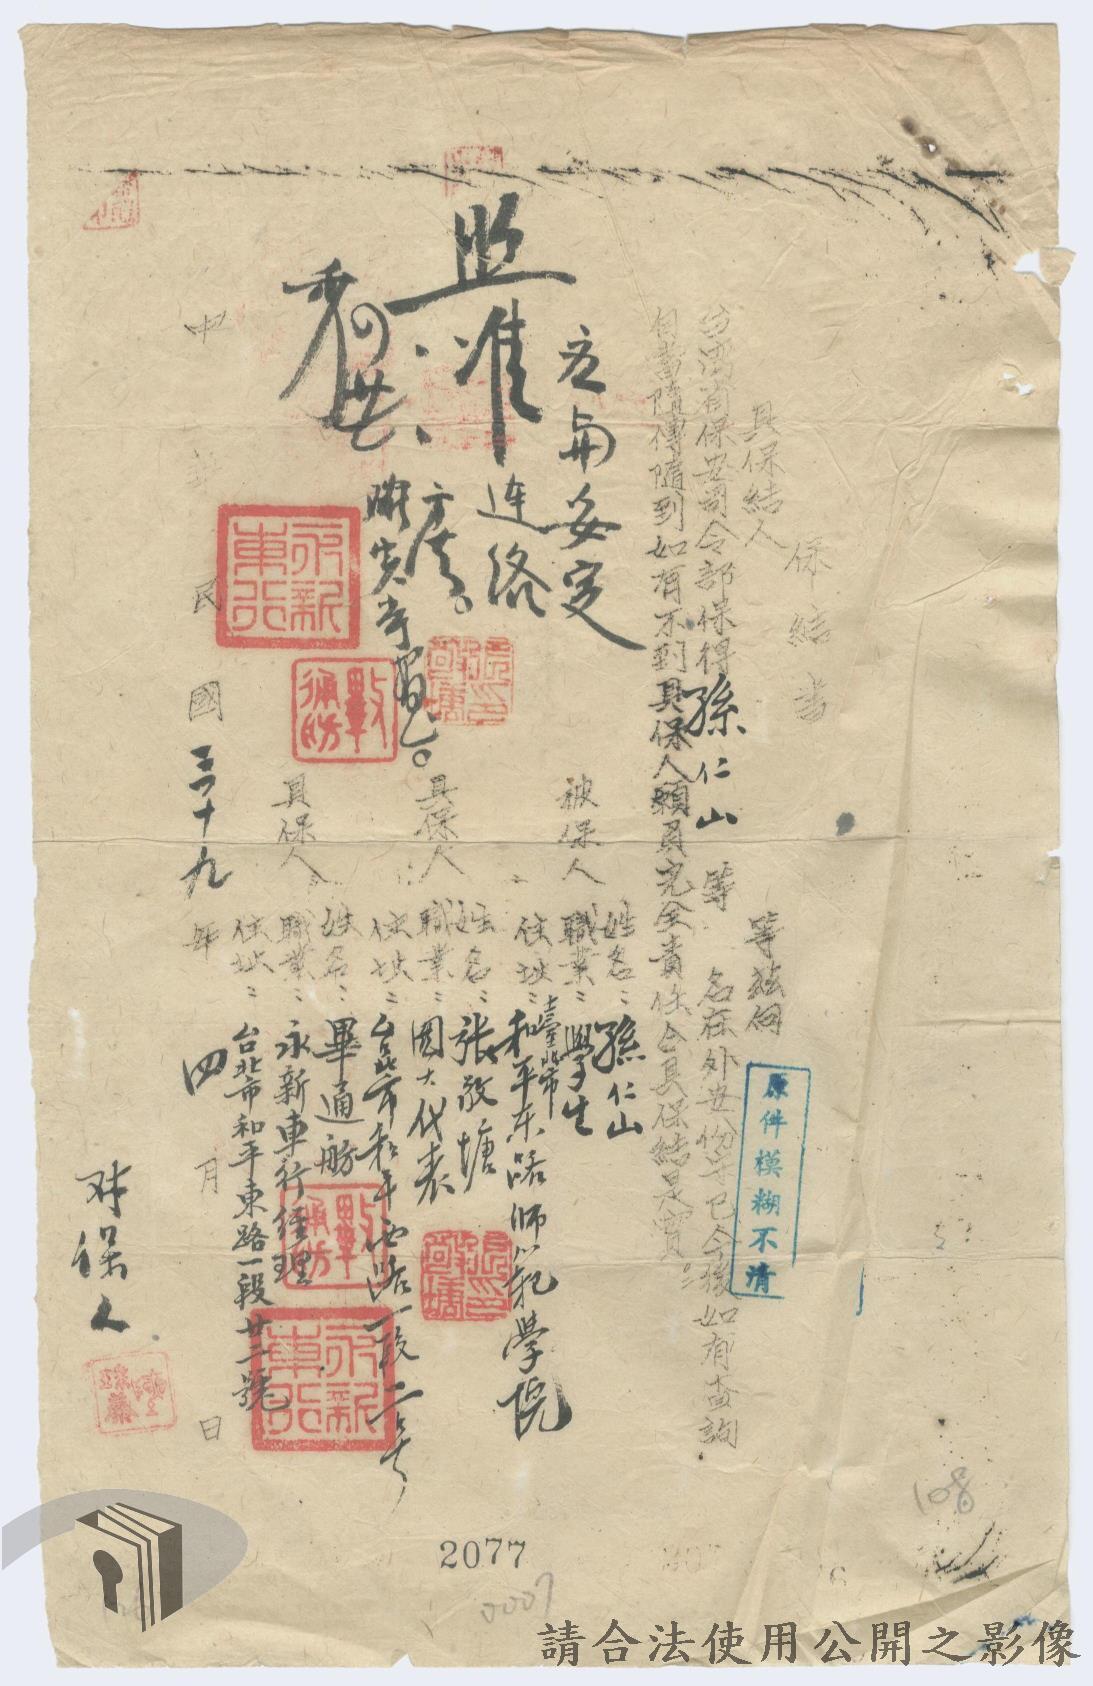 保結書
具保結人 等茲向
台灣省保安司令部保得孫仁山 等 名在外安份守己今後如有查詢
自當隨傳隨到如有不到具保人願負完全責任合具保結是實
被保人
姓名：孫仁山
職業：學生
住址：臺北市和平東路師範學院
具保人
姓名：張敬塘
職業：國大代表
住址：台北市和平西路一段二号
具保人
姓名：畢通舫
職業：永新車行經理
住址：台北市和平東路一段廿二號
中華民國三十九年四月 日
對保人
照准
應與妥定
連絡
方法
永新車行
畢通舫
張敬塘印
張敬塘印
畢通舫
永新車行
原件模糊不清
108
2077
0007
請合法使用公開之影像